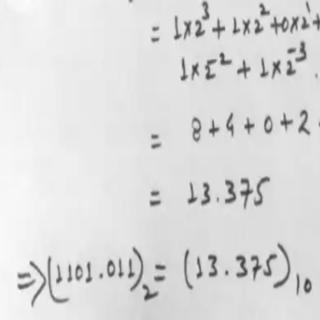 = 1×2³ + 1×2² + 0×2¹ +
1×2⁻² + 1×2⁻³.
= 8 + 4 + 0 + 2
= 13.375
=> (1101.011)₂ = (13.375)₁₀